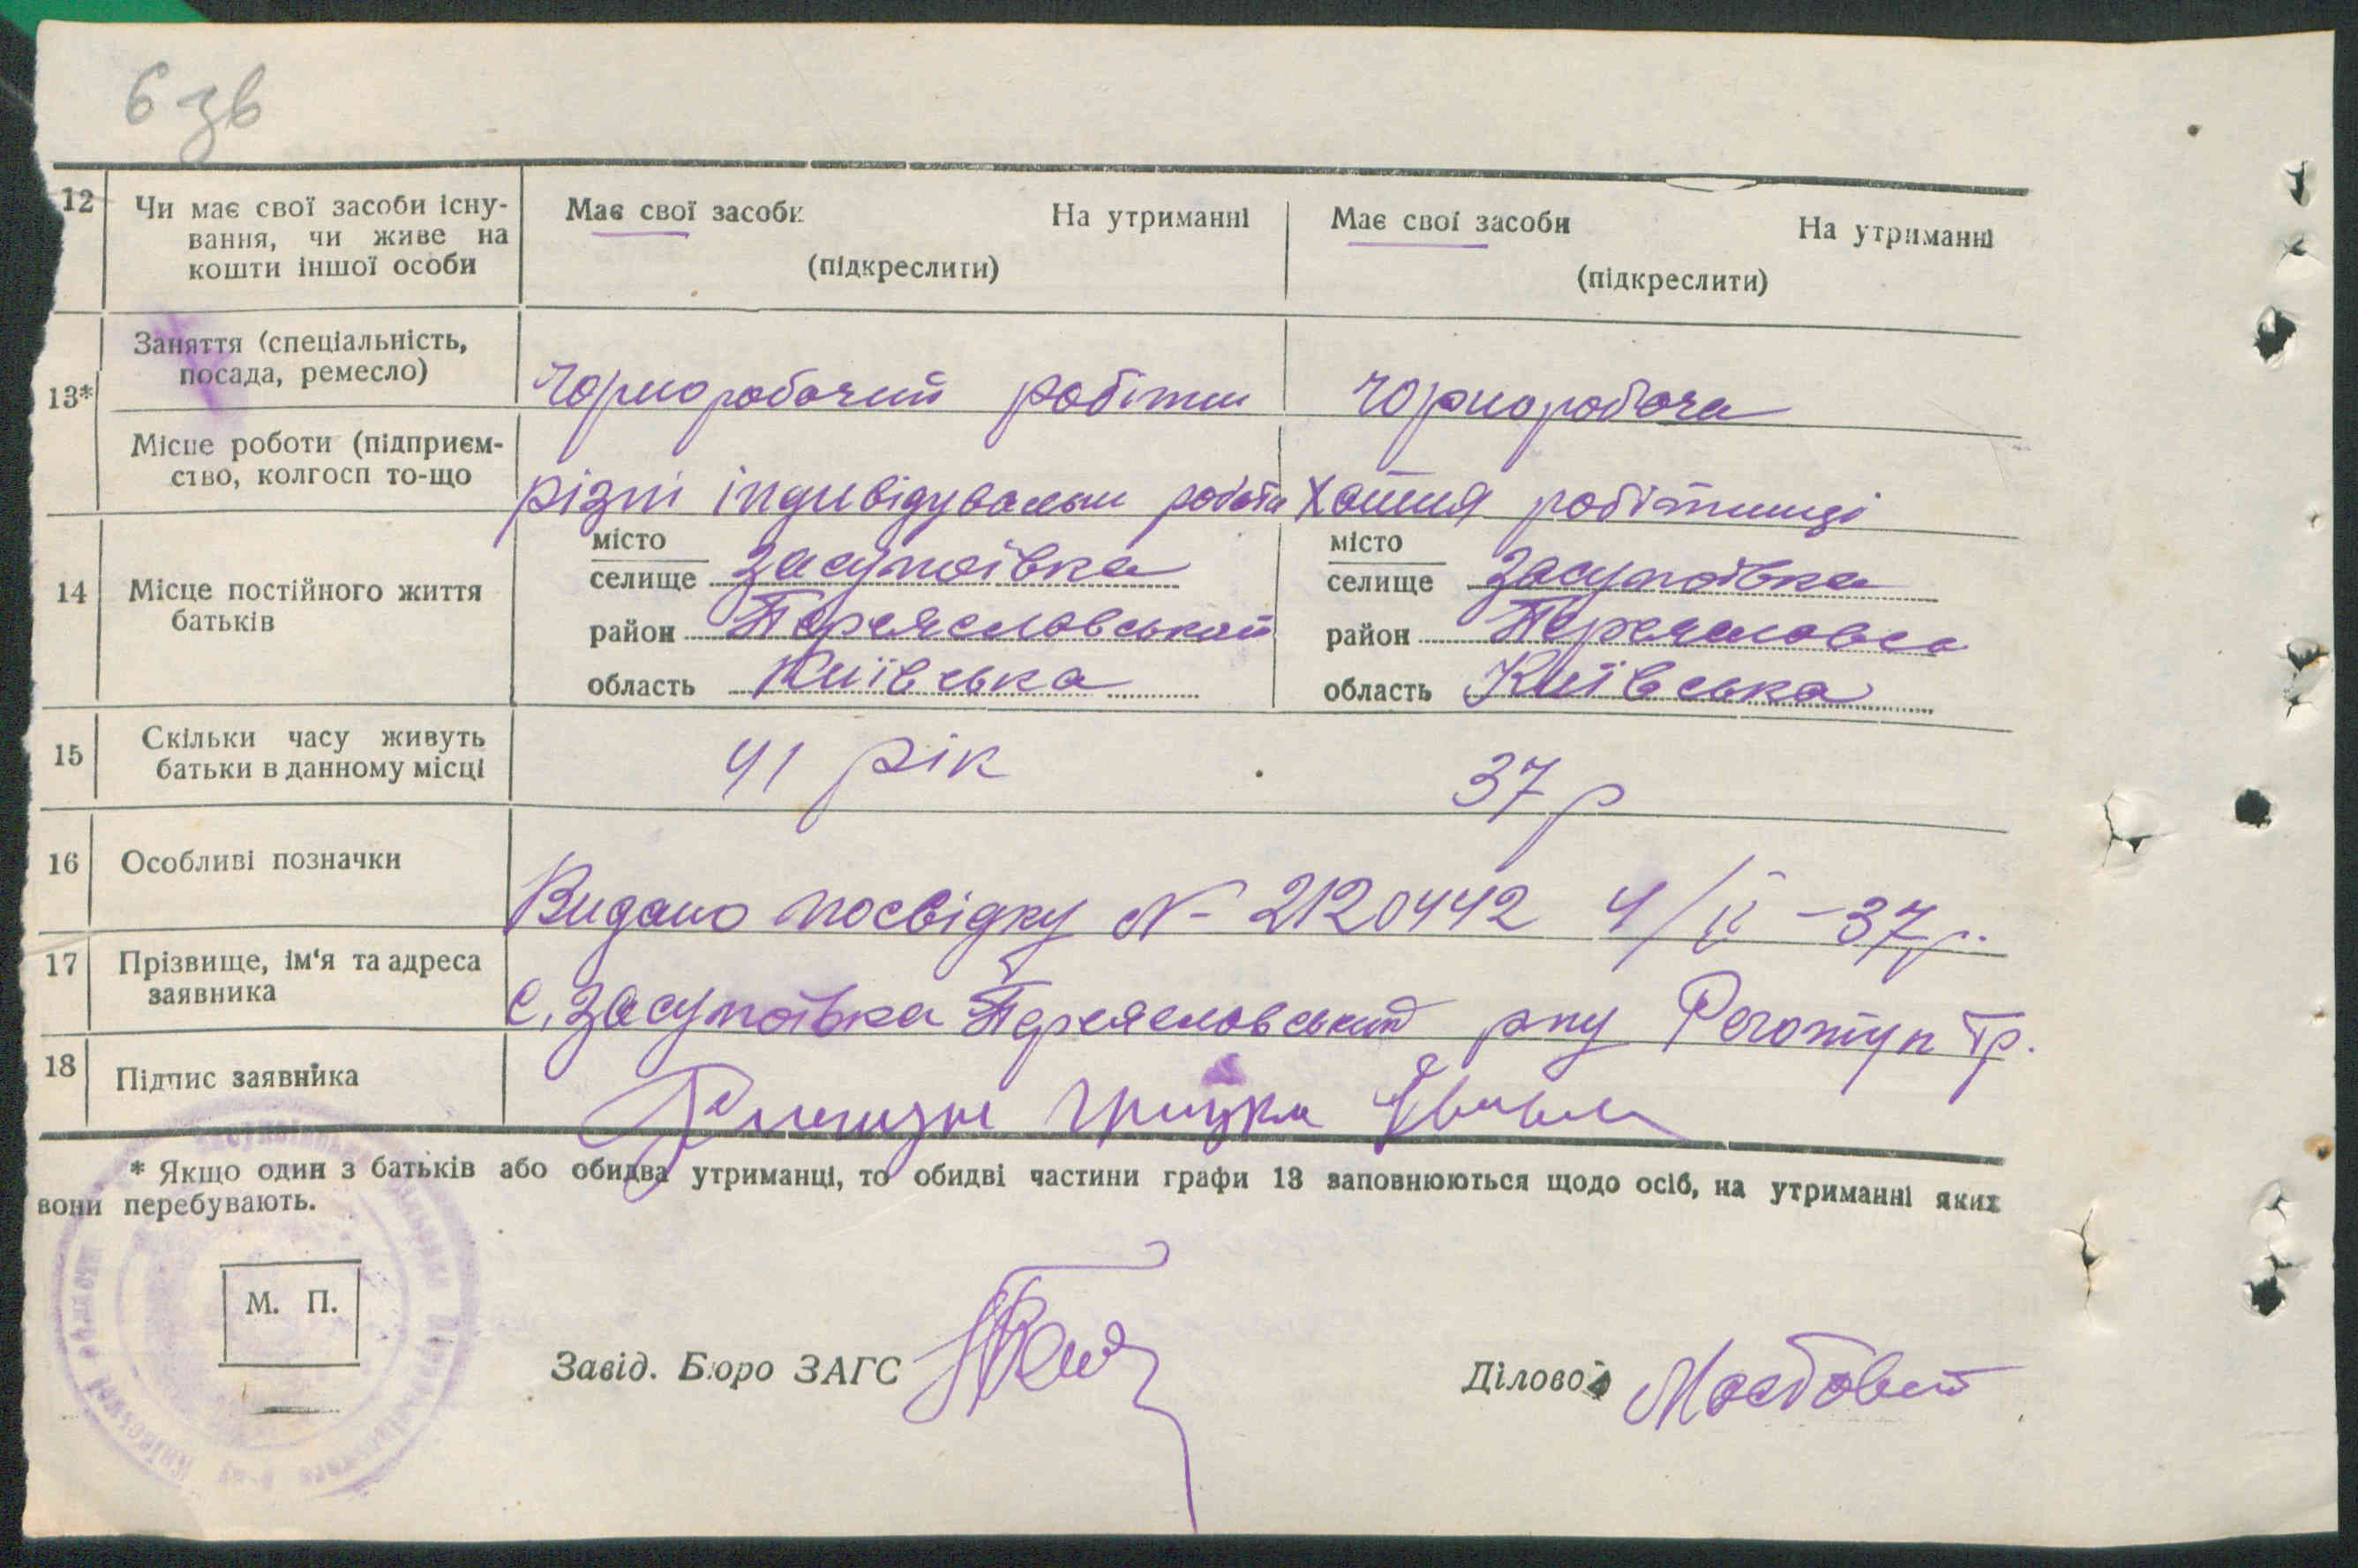 6 зв
12 Чи має свої засоби існу- Має свої засоби На утриманні Має свої засоби На утриманні
вання, чи живе на
кошти іншої особи (підкреслити) (підкреслити)
13* Заняття (спеціальність,
посада, ремесло) чорноробочий чорноробоча
Місце роботи (підприєм-
ство, колгосп то-що різні індивідуальни робота хатня робітниці
місто місто
14 Місце постійного життя селище Засупоївка селище Засупоївка
батьків район Переясловський район Переясловсь
область Київська область Київська
15 Скільки часу живуть
батьки в данному місці 41 рік 37 р
16 Особливі позначки
Видано посвідку № 2120442 4/ІІ – 37 р.
17 Прізвище, ім'я та адреса
заявника с. Засупоївка Переясловський рну Гр.
18 Підпис заявника
* Якщо один з батьків або обидва утриманці, то обидві частини графи 13 заповнюються щодо осіб, на утриманні яких
вони перебувають.
М. П.
Завід. Бюро ЗАГС Діловод Мостовий